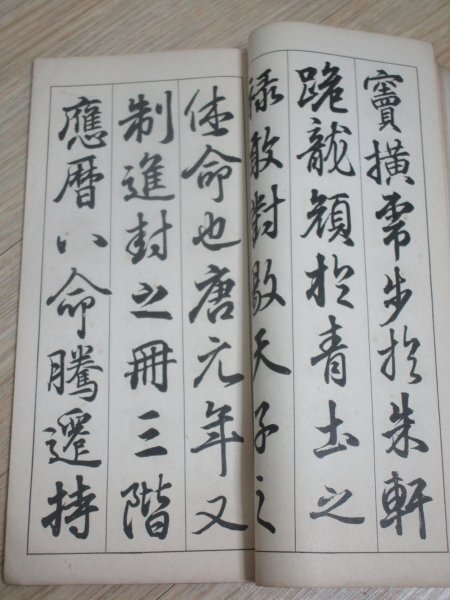 竇橫步於朱軒
跪龍顏於青土之
祿敢對敭天子之
休命也唐元年又
制進封之冊三階
應曆八命騰遷持